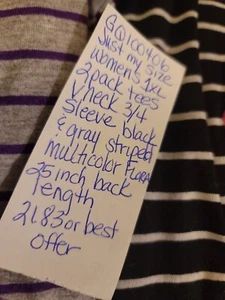 GQ100406
Just my size
Womens 1XL
2 pack tees
V neck 3/4
Sleeve black
& gray striped
multicolor Floral
25 inch back
length
21.83 or best
offer